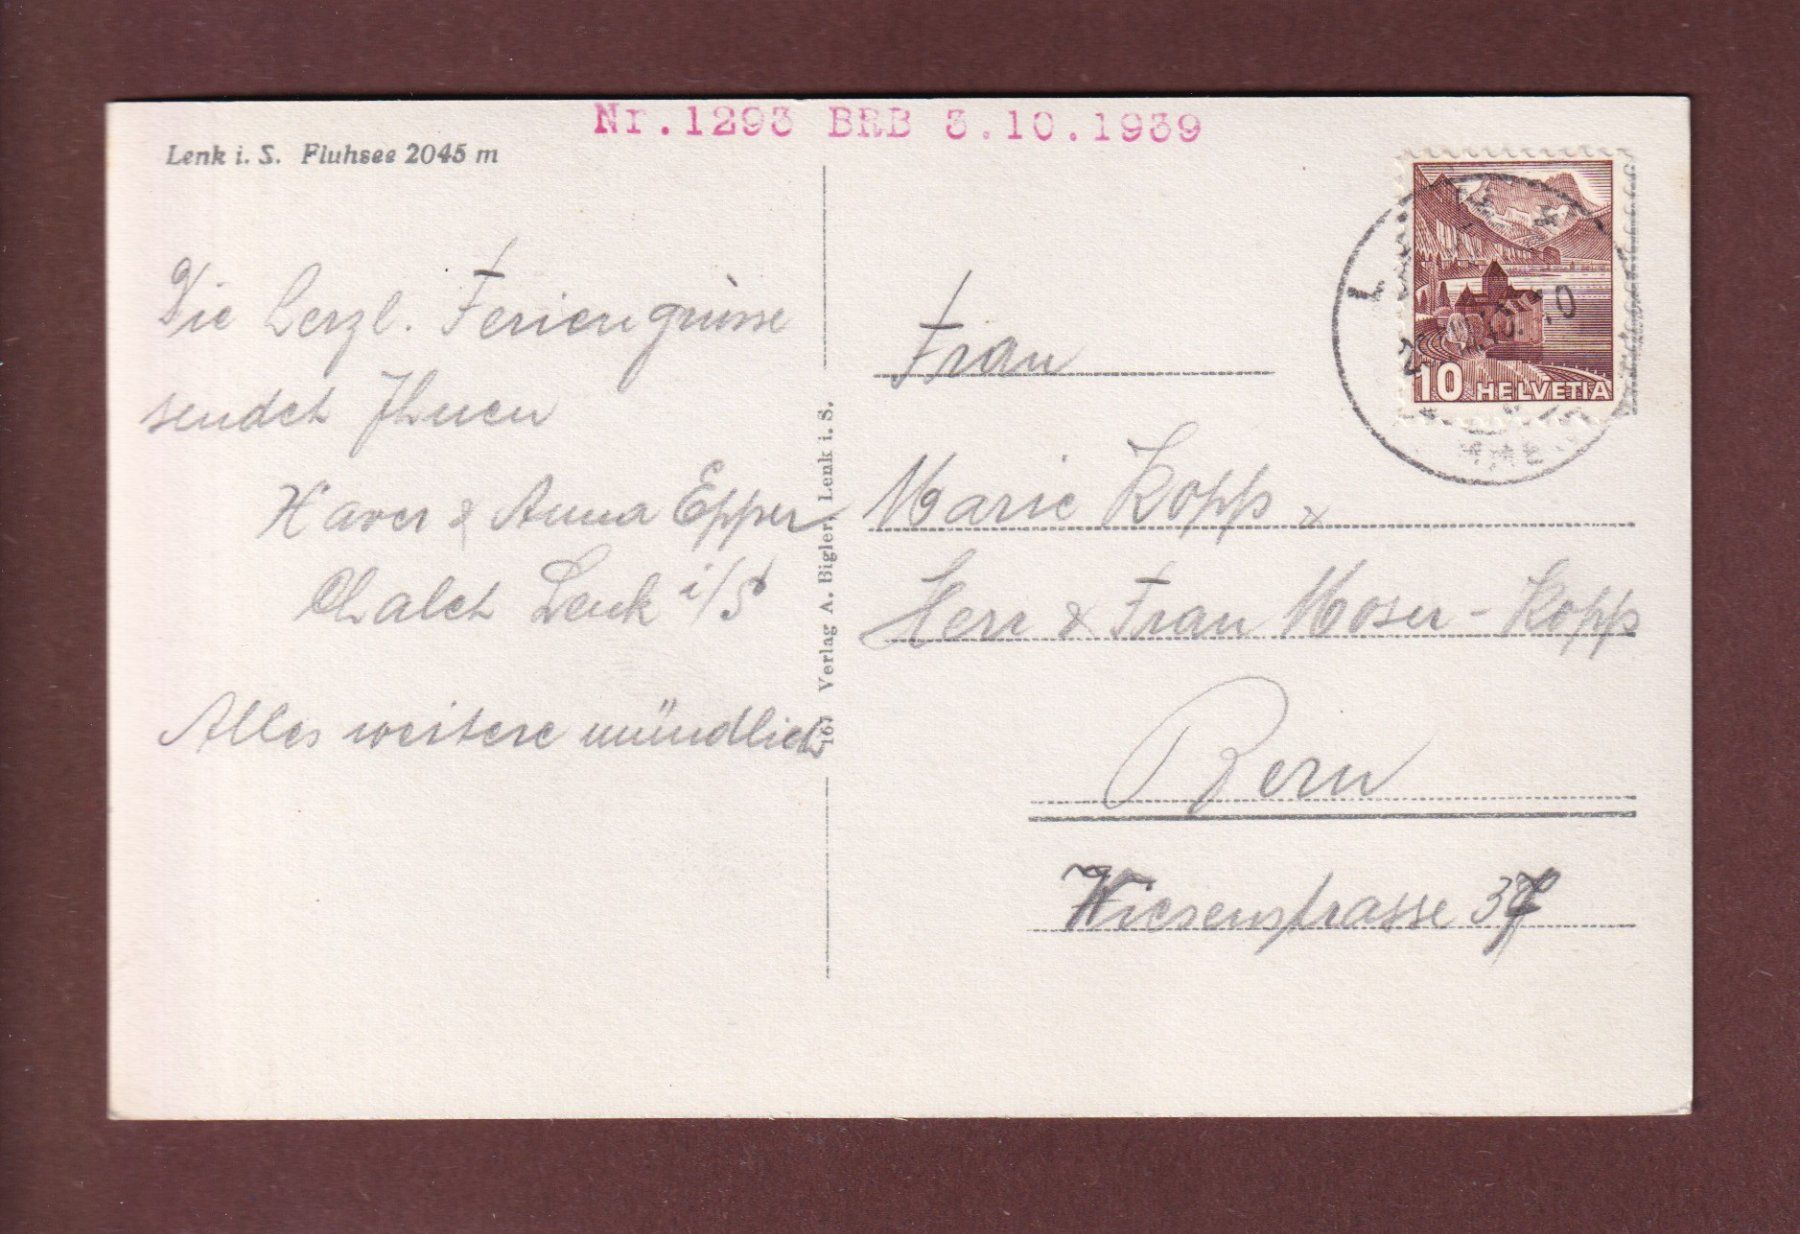 Nr.1293 BRB 3.10.1939
Lenk i. S. Fluhsee 2045 m
Die herzl. Feriengrüsse
sendet Ihnen
Xaver & Anna Epper
Chalet Lenk i/S
Alles weitere mündlich
167 Verlag A. Bigler, Lenk i. S.
10 HELVETIA
Frau
Marie Kopp &
Herr & Frau Moser-Kopp
Bern
Wiesenstrasse